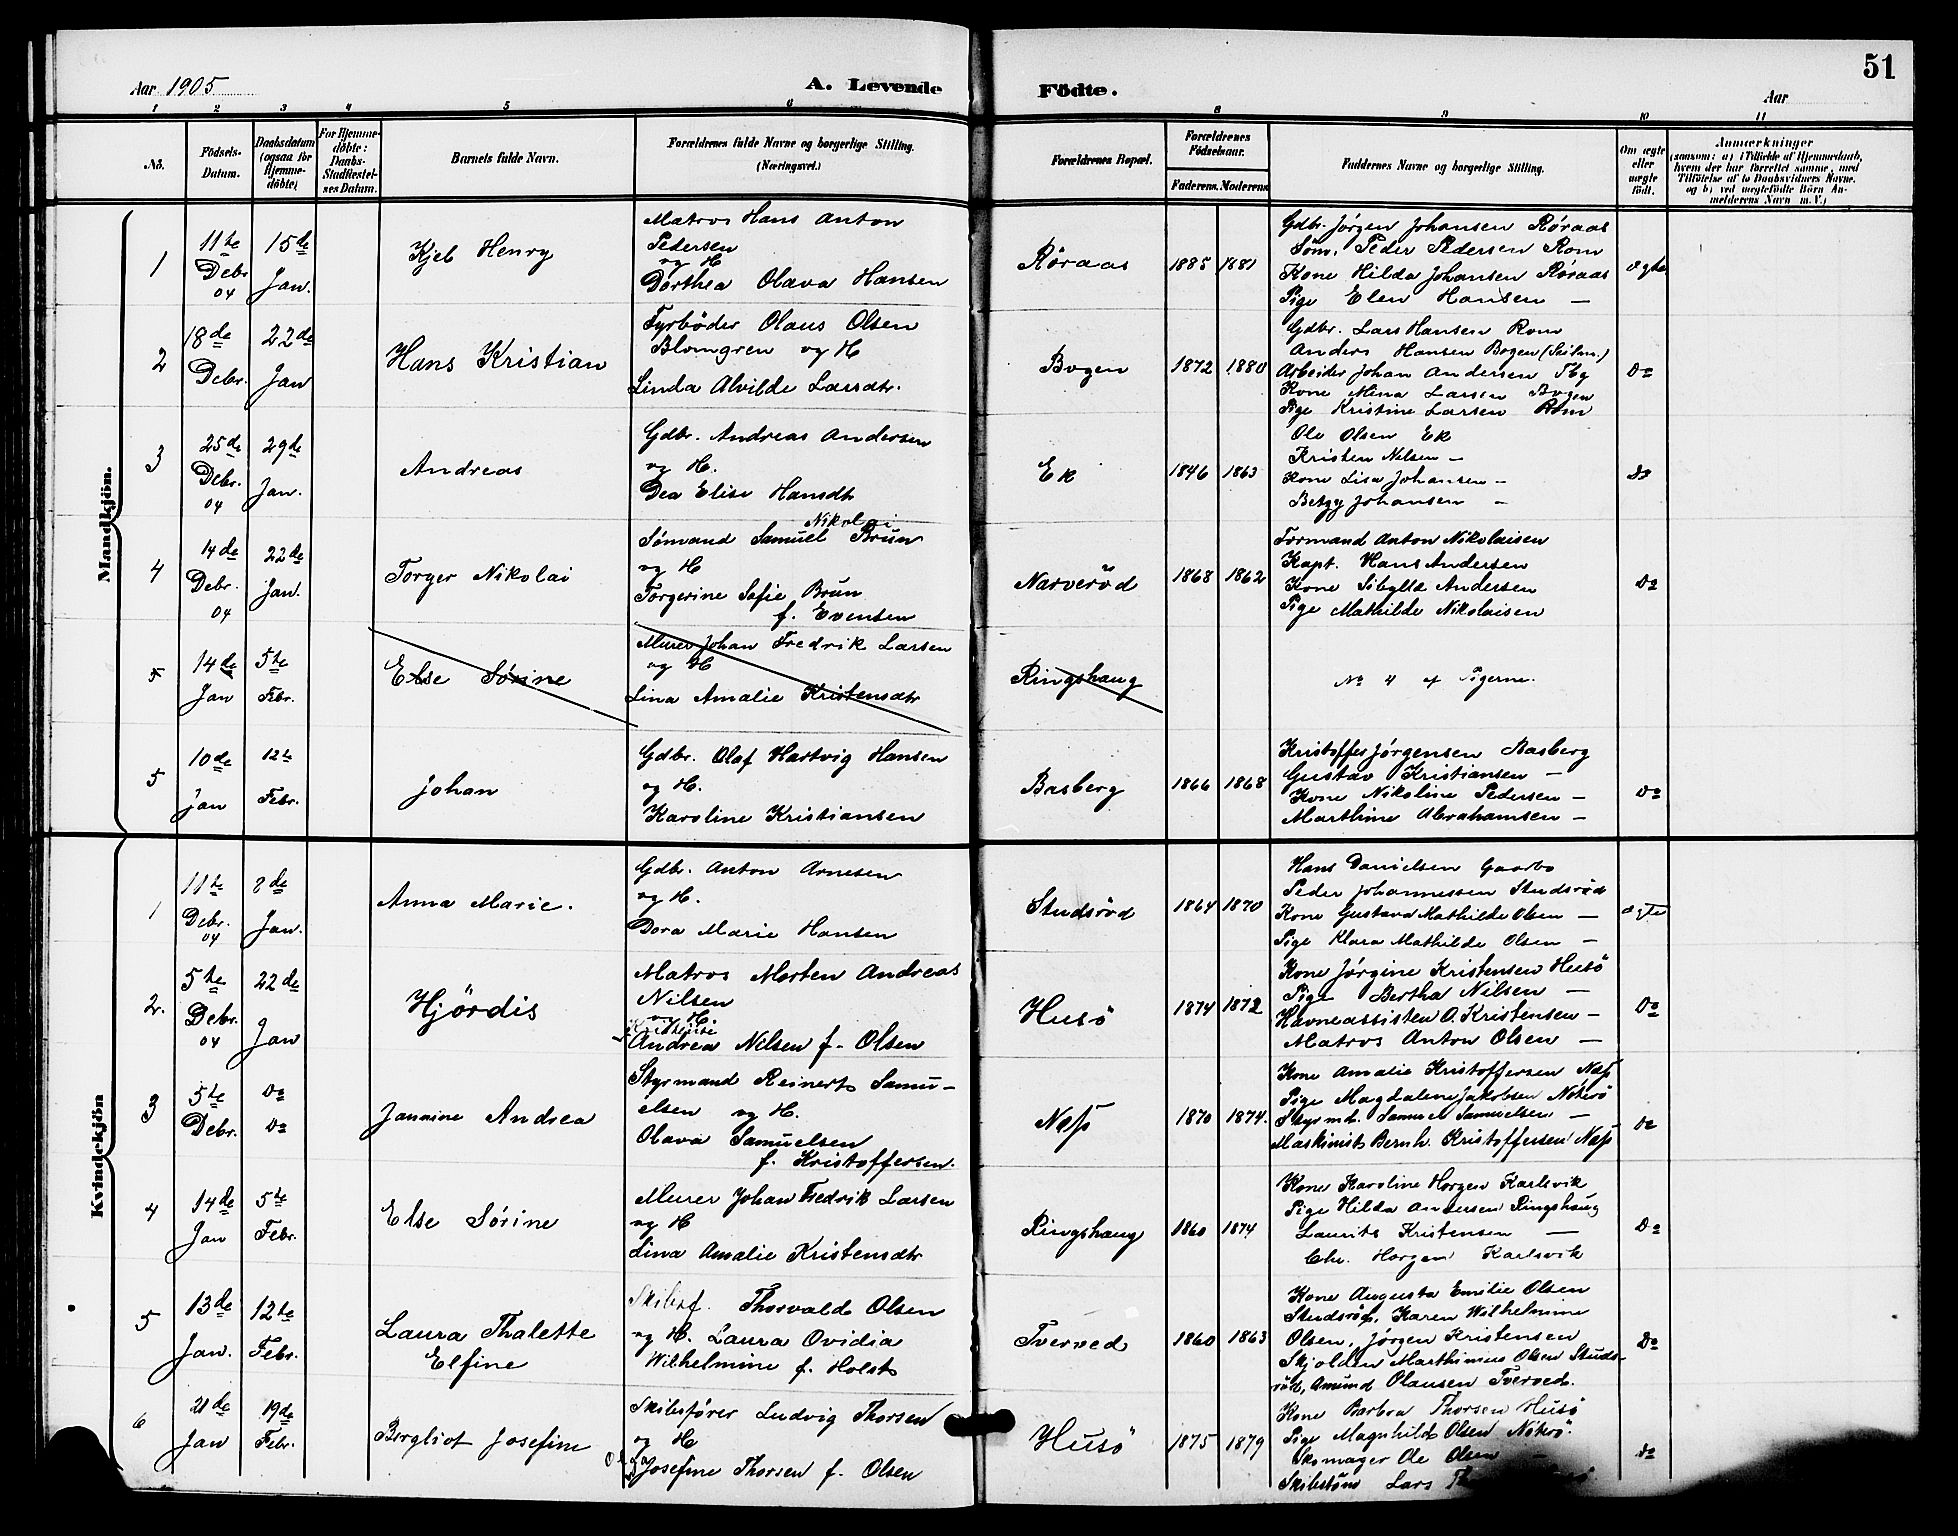 51
Aar 1905
A. Levende Födte.
Aar
1 2 3 4 5 6 8 9 10 11
No.
Födsels-Datum.
Daabsdatum (ogsaa for Hjemmedöbte)
For Hjemmedöbte: Daabs-Stadfæstelses Datum.
Barnets fulde Navn.
Forældrenes fulde Navne og borgerlige Stilling.
(Næringsvei.)
Forældrenes Bopæl.
Forældrenes Födselsaar.
Faderens. Moderens.
Faddernes Navne og borgerlige Stilling.
Om ægte eller uægte födt.
Anmærkninger
(saasom: a) i Tilfælde af Hjemmedaab, hvem der har forrettet samme, med Tilföielse af to Daabsvidners Navne. og b) ved uægtefödte Börn Anmelderens Navn m. V.)
Mandkjön.
1
11te Debr 04
15de Jan.
Kjel Henry
Matros Hans Anton
Pedersen
og H
Dorthea Olava Hansen
Røraas
1885
1881
Gdbr. Jørgen Johansen Røraas
Søm. Peder Pedersen Rom
Kone Hilda Johansen Røraas
Pige Elen Hansen —
ægte
2
18de Debr.
22de Jan
Hans Kristian
Fyrbøder Olaus Olsen
Blomgren og H
Linda Alvilde Larsdtr.
Bogen
1872
1880
Gdbr. Lars Hansen Rom
Anders Hansen Bogen
Arbeider Johan Andersen Tbg
Kone Mina Larsen Bogen
Pige Kristine Larsen Rom
Do
3
25de Debr. 04
29de Jan.
Andreas
Gdbr. Andreas Andersen
og H.
Dea Elise Hansdt
Ek
1846
1863
Ole Olsen Ek
Kristen Nilsen —
Kone Lisa Johansen —
Betzy Johansen —
Do
4
14de Debr. 04
22de Jan.
Torger Nikolai
Nikolai
Sømand Samuel Brun
og H
Torgerine Sofie Brun
f. Evensen
Narverød
1868
1862
Formand Anton Nikolaisen
Kapt. Hans Andersen
Kone Sibylle Andersen
Pige Mathilde Nikolaisen
Do
5
14de Jan
5te Febr.
Else Sørine
Murer Johan Fredrik Larsen
og H
Lina Amalie Kristensdtr
Ringshaug
No 4 af Pigerne.
5
10de Jan
12te Febr.
Johan
Gdbr. Olaf Hartvig Hansen
og H.
Karoline Kristiansen
Basberg
1866
1868
Kristoffer Jørgensen Basberg
Gustav Kristiansen —
Kone Nikoline Pedersen —
Marthine Abrahamsen —
Do
Kvindekjön
1
11te Debr. 04
8de Jan.
Anna Marie.
Gdbr. Anton Arnesen
og H.
Dora Marie Hansen
Studsrød
1864
1870
Hans Danielsen Gaarbo
Peder Johannessen Studsrød
Kone Gustava Mathilde Olsen —
Pige Klara Mathilde Olsen —
ægte
2.
5te Debr. 04
22de Jan
Hjördis
Matros Morten Andreas
Nilsen
og H.
Andrea Nilsen f. Olsen
Husö
1874
1872
Kone Jørgine Kristensen Husö
Pige Bertha Nilsen —
Havneassisten O. Kristensen —
Matros Anton Olsen —
Do
3
5te Debr.
Do Do
Jannine Andrea
Styrmand Reinert Samu-
elsen og H.
Olava Samuelsen
f. Kristoffersen.
Næss
1870
1874.
Kone Amalie Kristoffersen Næss
Pige Magdalene Jakobsen Nøterø
Styrm. Samuel Samuelsen —
Maskinist Bernh. Kristoffersen Næss
Do
4
14de Jan
5te Febr.
Else Sørine
Murer Johan Fredrik Larsen
og H
Lina Amalie Kristensdtr
Ringshaug
1860
1874
Kone Karoline Horgen Karlsvik
Pige Hilda Andersen Ringshaug
Laurits Kristensen —
Chr. Horgen Karlsvik
Do
5
13de Jan.
12te Febr.
Laura Thalette
Elfine
Skibsf. Thorvald Olsen
og H. Laura Ovidia
Wilhelmine f. Holst
Tverved
1860
1863
Kone Augusta Emilie Olsen
Studsrød, Karen Wilhelmine
Olsen, Jørgen Kristensen
Skjolden Marthinius Olsen Studs-
rød, Amund Olausen Tverved.
Do
6
21de Jan
19de Febr.
Bergliot Josefine
Skibsfører Ludvig Thorsen
og H
Josefine Thorsen f. Olsen
Husö
1875
1879
Kone Barbra Thorsen Husö
Pige Magnhild Olsen Nøterø.
Skomager Ole Olsen —
Skibstøm Lars
Do